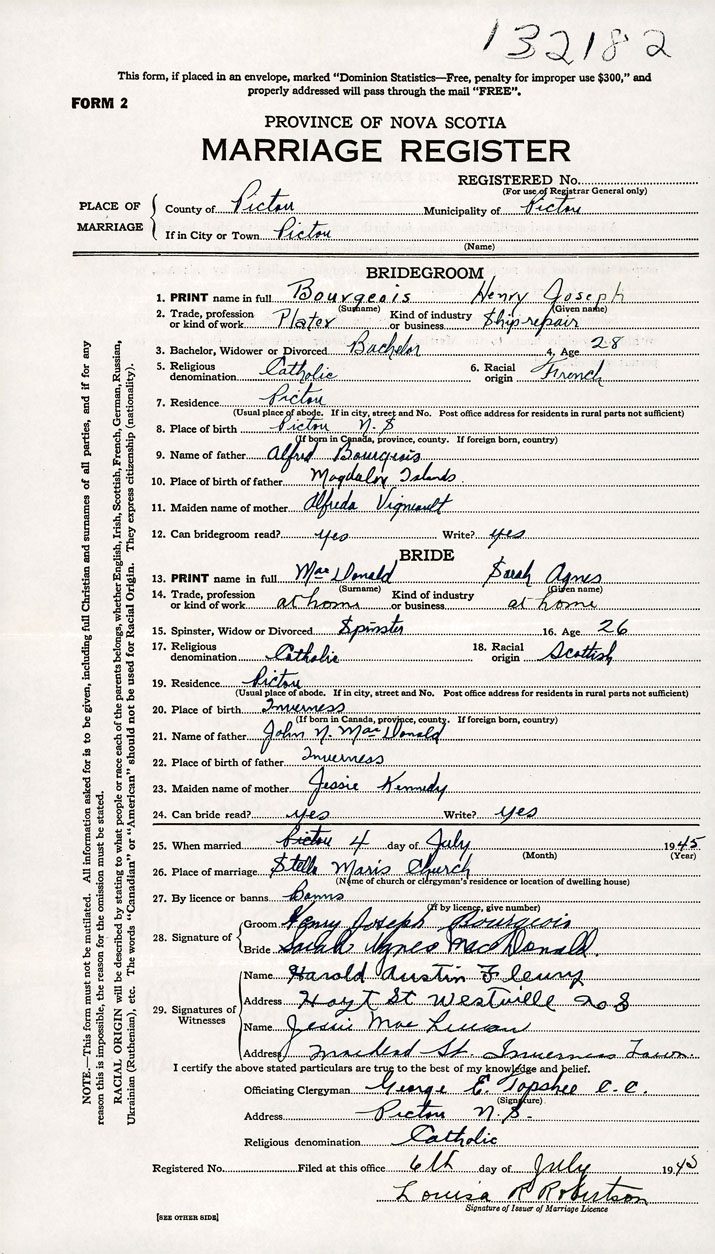 132182
This form, if placed in an envelope, marked "Dominion Statistics—Free, penalty for improper use $300," and
properly addressed will pass through the mail "FREE".
FORM 2
PROVINCE OF NOVA SCOTIA
MARRIAGE REGISTER
REGISTERED No.
(For use of Registrar General only)
PLACE OF MARRIAGE
County of Pictou Municipality of Pictou
If in City or Town Pictou
(Name)
BRIDEGROOM
1. PRINT name in full Bourgeois Henry Joseph
(Surname) (Given name)
2. Trade, profession or kind of work Plater Kind of industry or business Ship repair
3. Bachelor, Widower or Divorced Bachelor 4. Age 28
5. Religious denomination Catholic 6. Racial origin French
7. Residence Pictou
(Usual place of abode. If in city, street and No. Post office address for residents in rural parts not sufficient)
8. Place of birth Pictou N.S
(If born in Canada, province, county. If foreign born, country)
9. Name of father Alfred Bourgeois
10. Place of birth of father Magdalen Islands
11. Maiden name of mother Alfreda Vigneault
12. Can bridegroom read? yes Write? yes
BRIDE
13. PRINT name in full MacDonald Sarah Agnes
(Surname) (Given name)
14. Trade, profession or kind of work at home Kind of industry or business at home
15. Spinster, Widow or Divorced Spinster 16. Age 26
17. Religious denomination Catholic 18. Racial origin Scottish
19. Residence Pictou
(Usual place of abode. If in city, street and No. Post office address for residents in rural parts not sufficient)
20. Place of birth Inverness
(If born in Canada, province, county. If foreign born, country)
21. Name of father John N. MacDonald
22. Place of birth of father Inverness
23. Maiden name of mother Jessie Kennedy
24. Can bride read? yes Write? yes
25. When married Pictou 4 day of July 1945
(Month) (Year)
26. Place of marriage Stella Maris Church
(Name of church or clergyman's residence or location of dwelling house)
27. By licence or banns Banns
(If by licence, give number)
28. Signature of
Groom Henry Joseph Bourgeois
Bride Sarah Agnes MacDonald.
29. Signatures of Witnesses
Name Harold Austin Fleury
Address Hoyt St Westville N S
Name Jessie Mac
Address St. Inverness Town.
I certify the above stated particulars are true to the best of my knowledge and belief.
Officiating Clergyman George E. Topshee C.C.
(Signature)
Address Pictou N.S.
Religious denomination Catholic
Registered No. Filed at this office 6th day of July 1945
Louisa R Robertson
Signature of Issuer of Marriage Licence
[SEE OTHER SIDE]
NOTE.—This form must not be mutilated. All information asked for is to be given, including full Christian and surnames of all parties, and if for any
reason this is impossible, the reason for the omission must be stated.
RACIAL ORIGIN will be described by stating to what people or race each of the parents belongs, whether English, Irish, Scottish, French, German, Russian,
Ukrainian (Ruthenian), etc. The words "Canadian" or "American" should not be used for Racial Origin. They express citizenship (nationality).